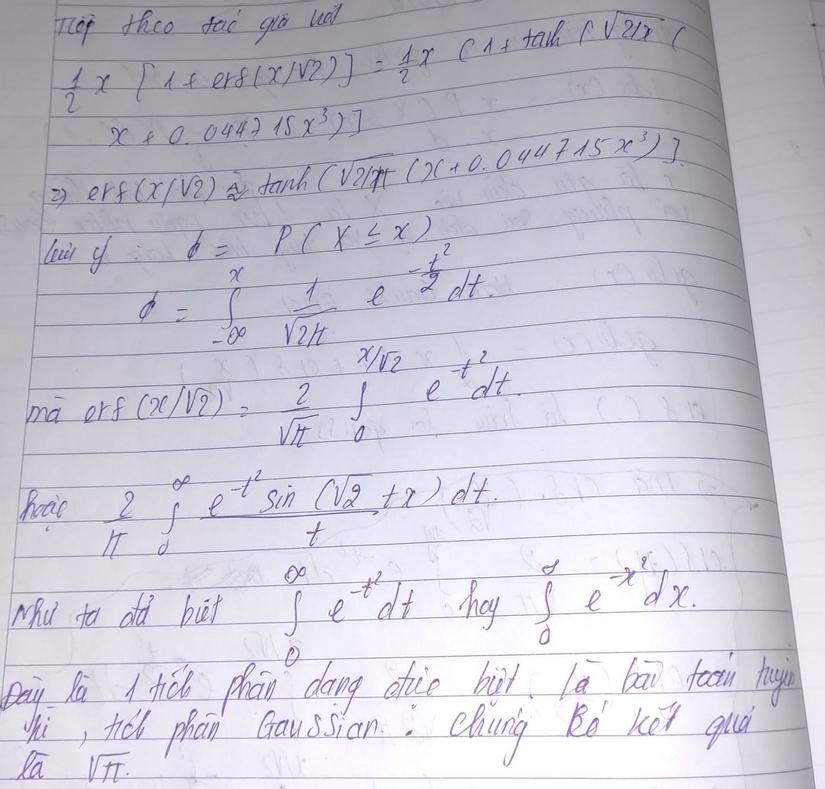 Tiếp theo tác giả viết
1/2 x [1 + erf(x/√2)] = 1/2 x (1 + tanh (√2/π (
x + 0.044715x³)]
=> erf(x/√2) ≈ tanh(√2/π (x + 0.044715x³)].
Lưu ý: ϕ = P(X ≤ x)
ϕ = ∫_{-∞}^{x} 1/√2π e^{-t²/2} dt.
mà erf(x/√2) = 2/√π ∫_{0}^{x/√2} e^{-t²} dt.
hoặc 2/π ∫_{0}^{∞} e^{-t²} sin(√2 tx) dt. / t
Như ta đã biết ∫_{0}^{∞} e^{-t²} dt hay ∫_{0}^{∞} e^{-x²} dx.
Đây là 1 tích phân dạng đặc biệt. là bài toán tuyển
thi, tích phân Gaussian. Chúng kết quả
là √π.